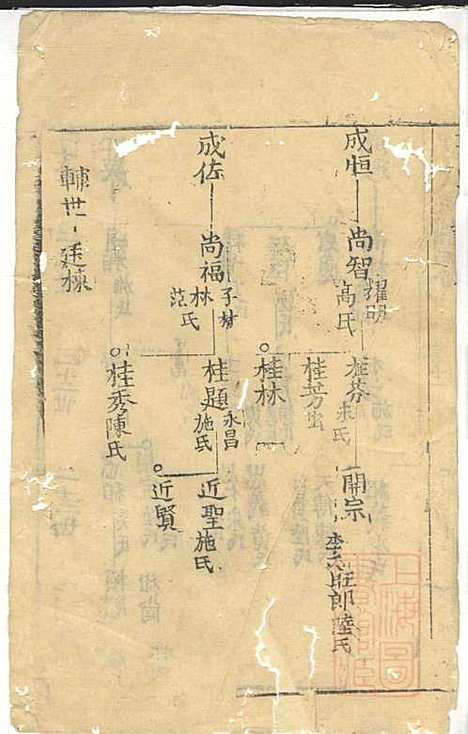 成恒
尚智
耀明
高氏
桂芬
朱氏
桂芳
桂林
開宗
旺郎陸氏
成佐
尚福
子材
林
范氏
桂題
永昌
施氏
桂秀陳氏
近聖施氏
近賢
廷棟
上海圖